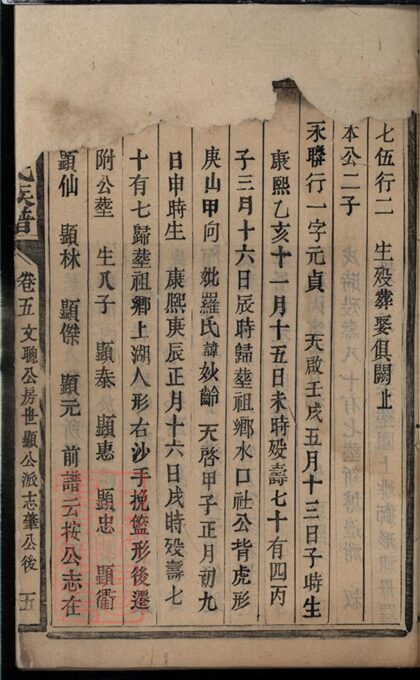 七伍行二　生殁葬娶俱闕止
本公二子
永聯行一字元貞　天啟壬戌五月十三日子時生
康熙乙亥十一月十五日未時殁壽七十有四丙
子三月十六日辰時歸塟祖鄉水口社公背虎形
庚山甲向　妣羅氏諱妙齡　天啓甲子正月初九
日申時生　康熙庚辰正月十六日戌時殁壽七
十有七歸塟祖鄉上湖人形右沙手挽籃形後遷
附公塟　生八子　顯泰　顯惠　顯忠　顯衢
顯仙　顯林　顯傑　顯元　前譜云按公志在
氏族譜
卷五　文聰公房世顯公派志華公後　五